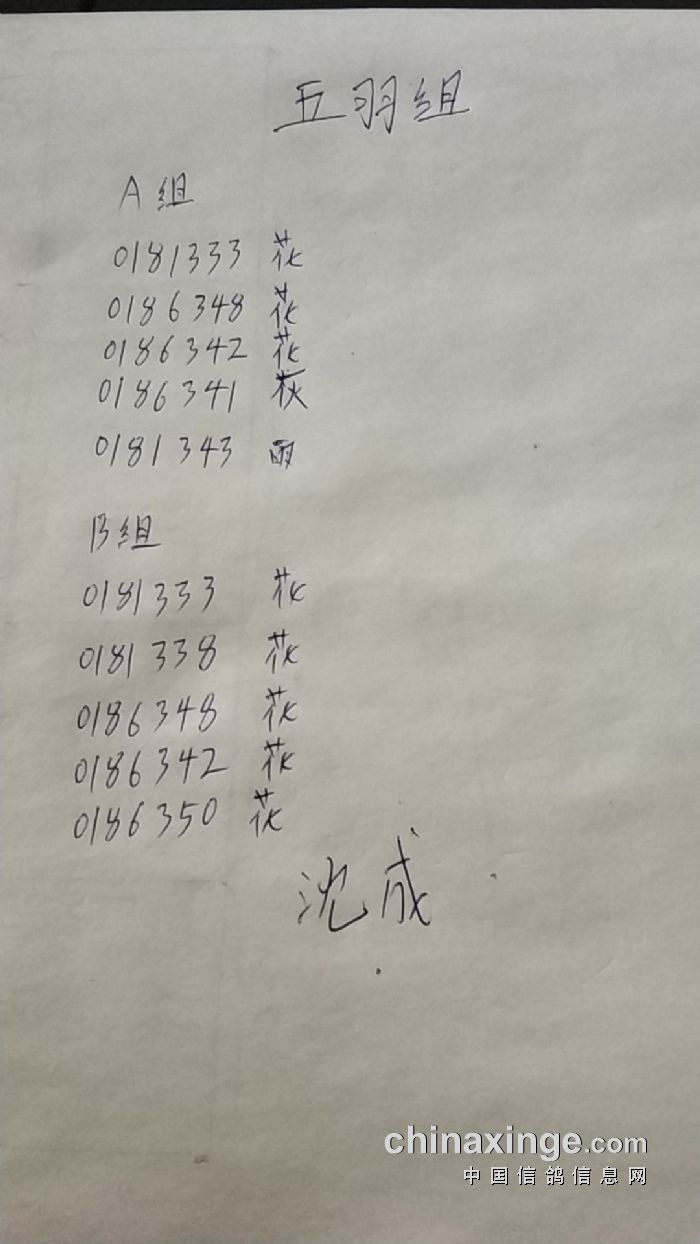 五羽组
A组
0181333 花
0186348 花
0186342 花
0186341 灰
0181343 雨
B组
0181333 花
0181338 花
0186348 花
0186342 花
0186350 花
沈成
chinaxinge.com
中国信鸽信息网